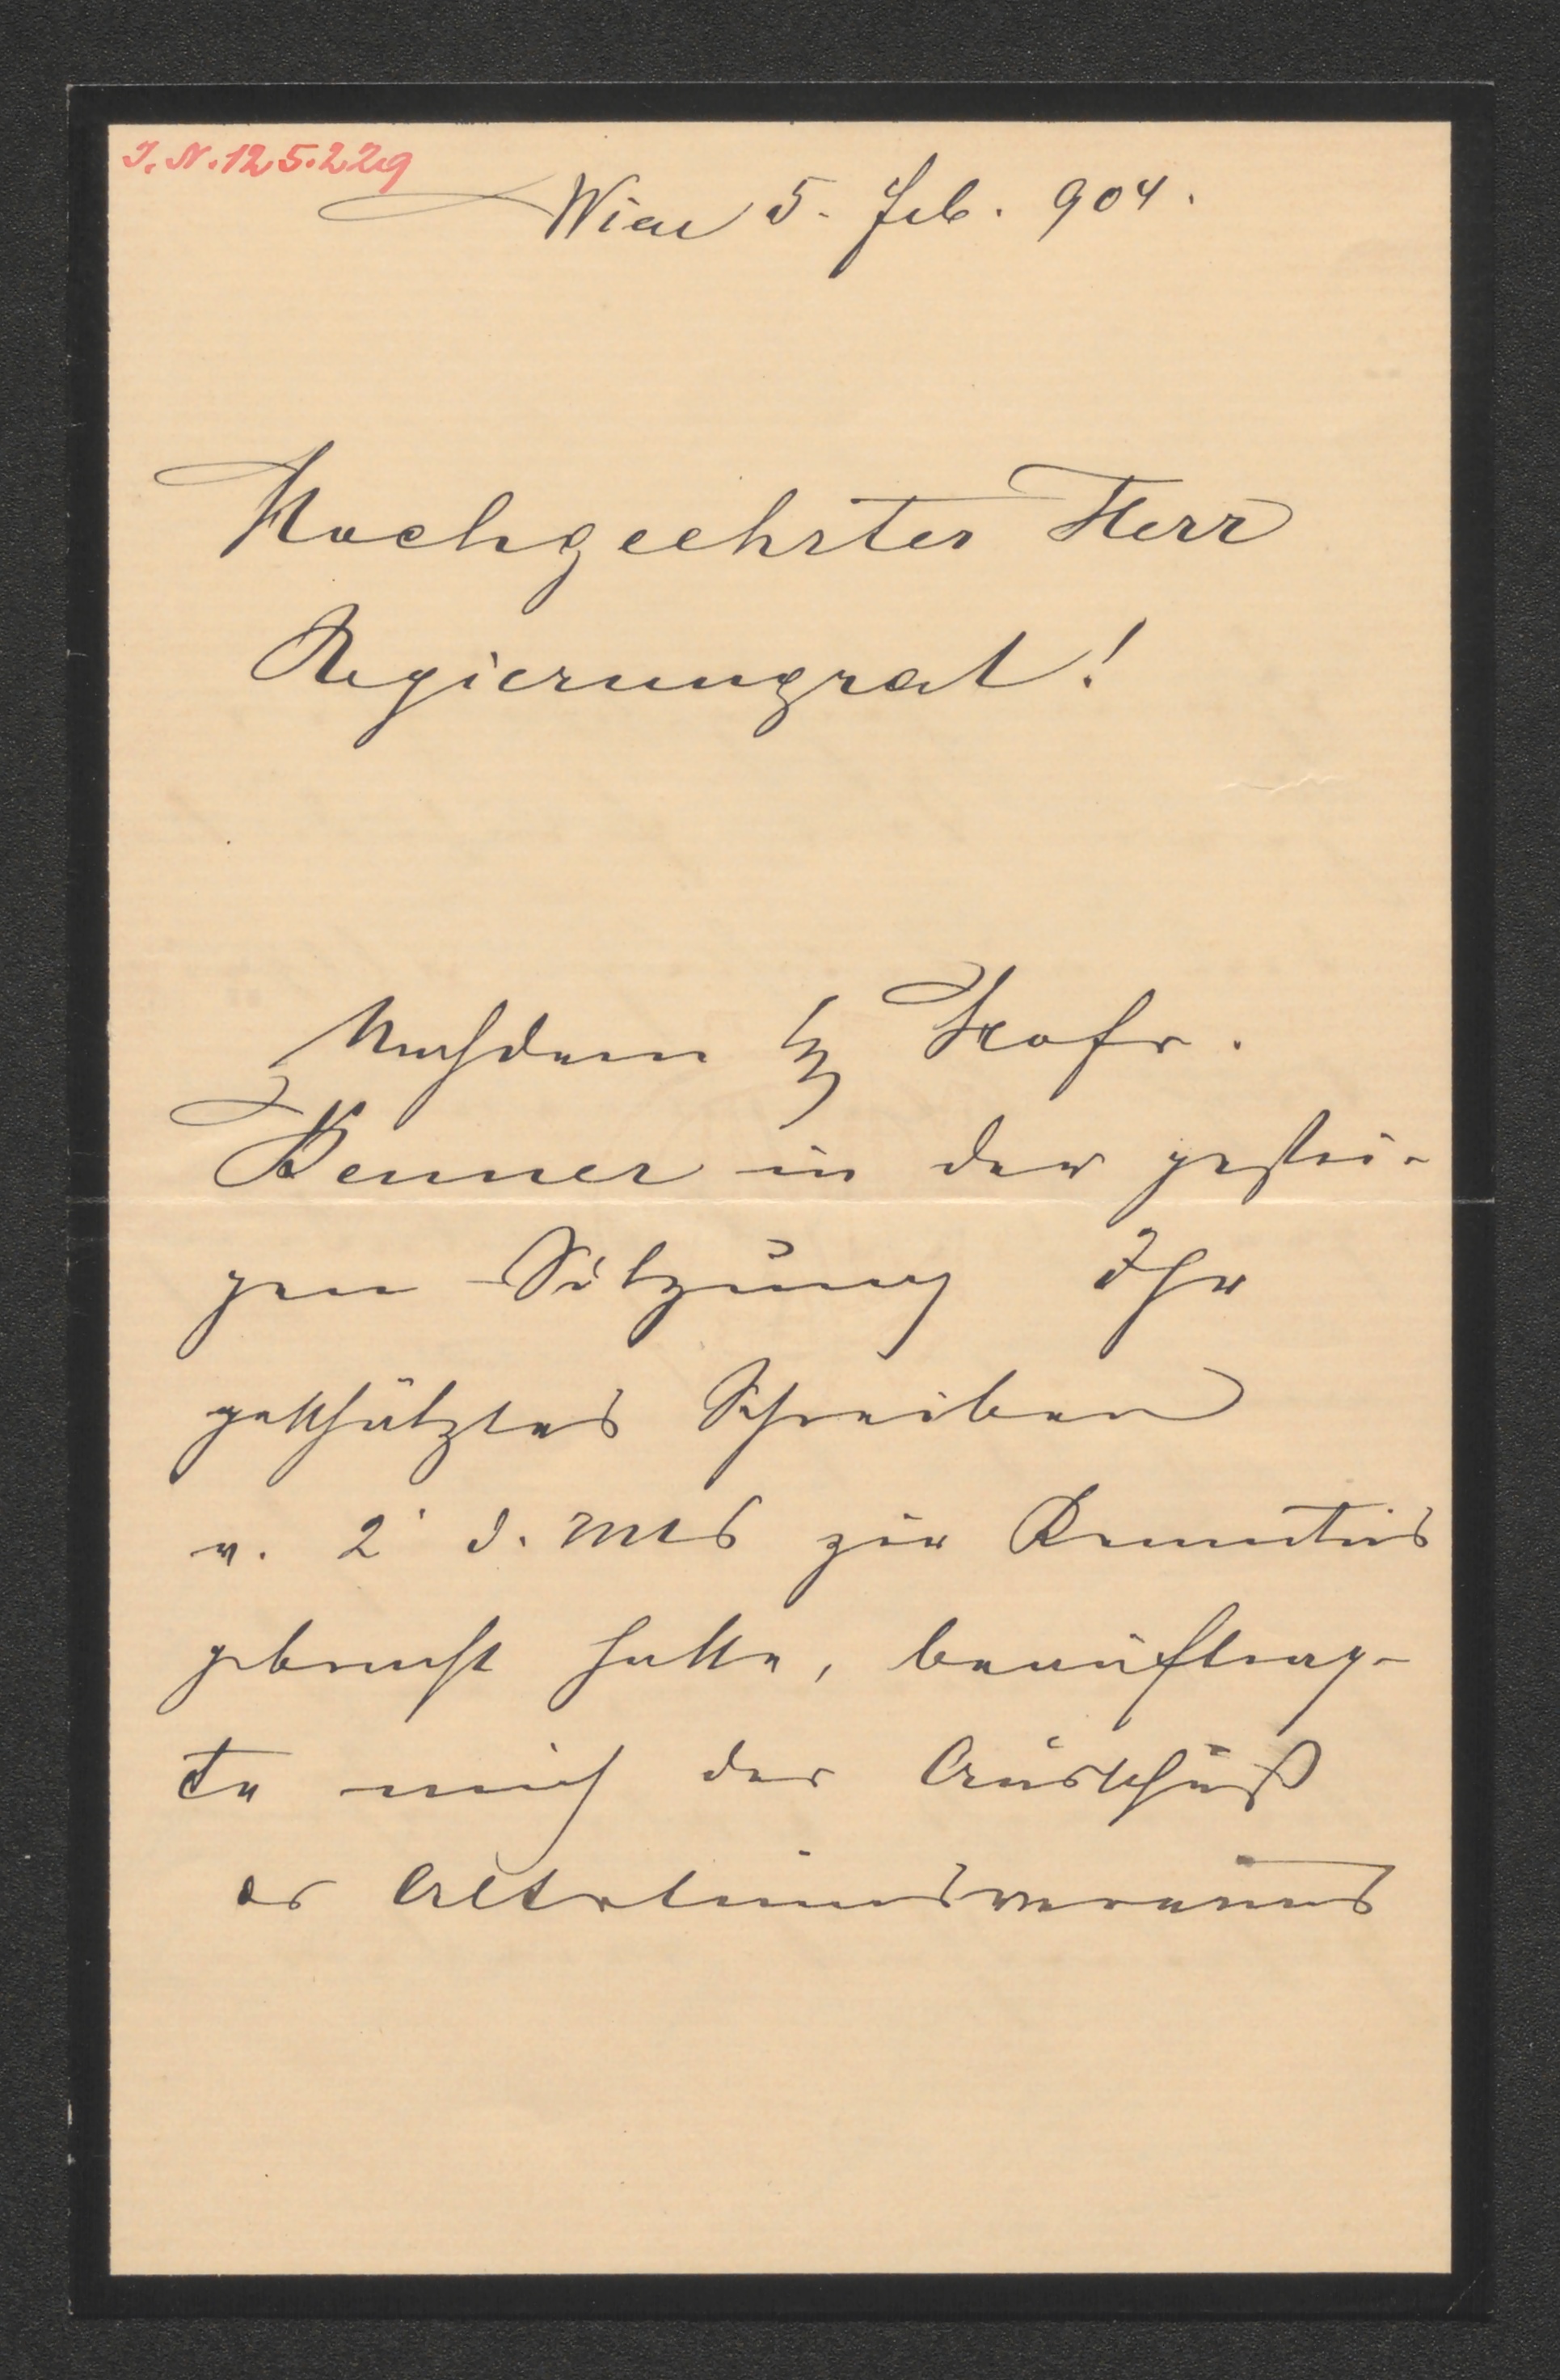 I. N. 125.229
Wien 5. Feb. 904.
Hochgeehrter Herr
Regierungrat!
Nachdem Hofr.
Kenner in der gestri-
gen Sitzung Ihr
geschätztes Schreiben
v. 2. d. Mts zur Kenntnis
gebracht hatte, beauftrag-
te mich der Ausschuß
des Altertumsvereines